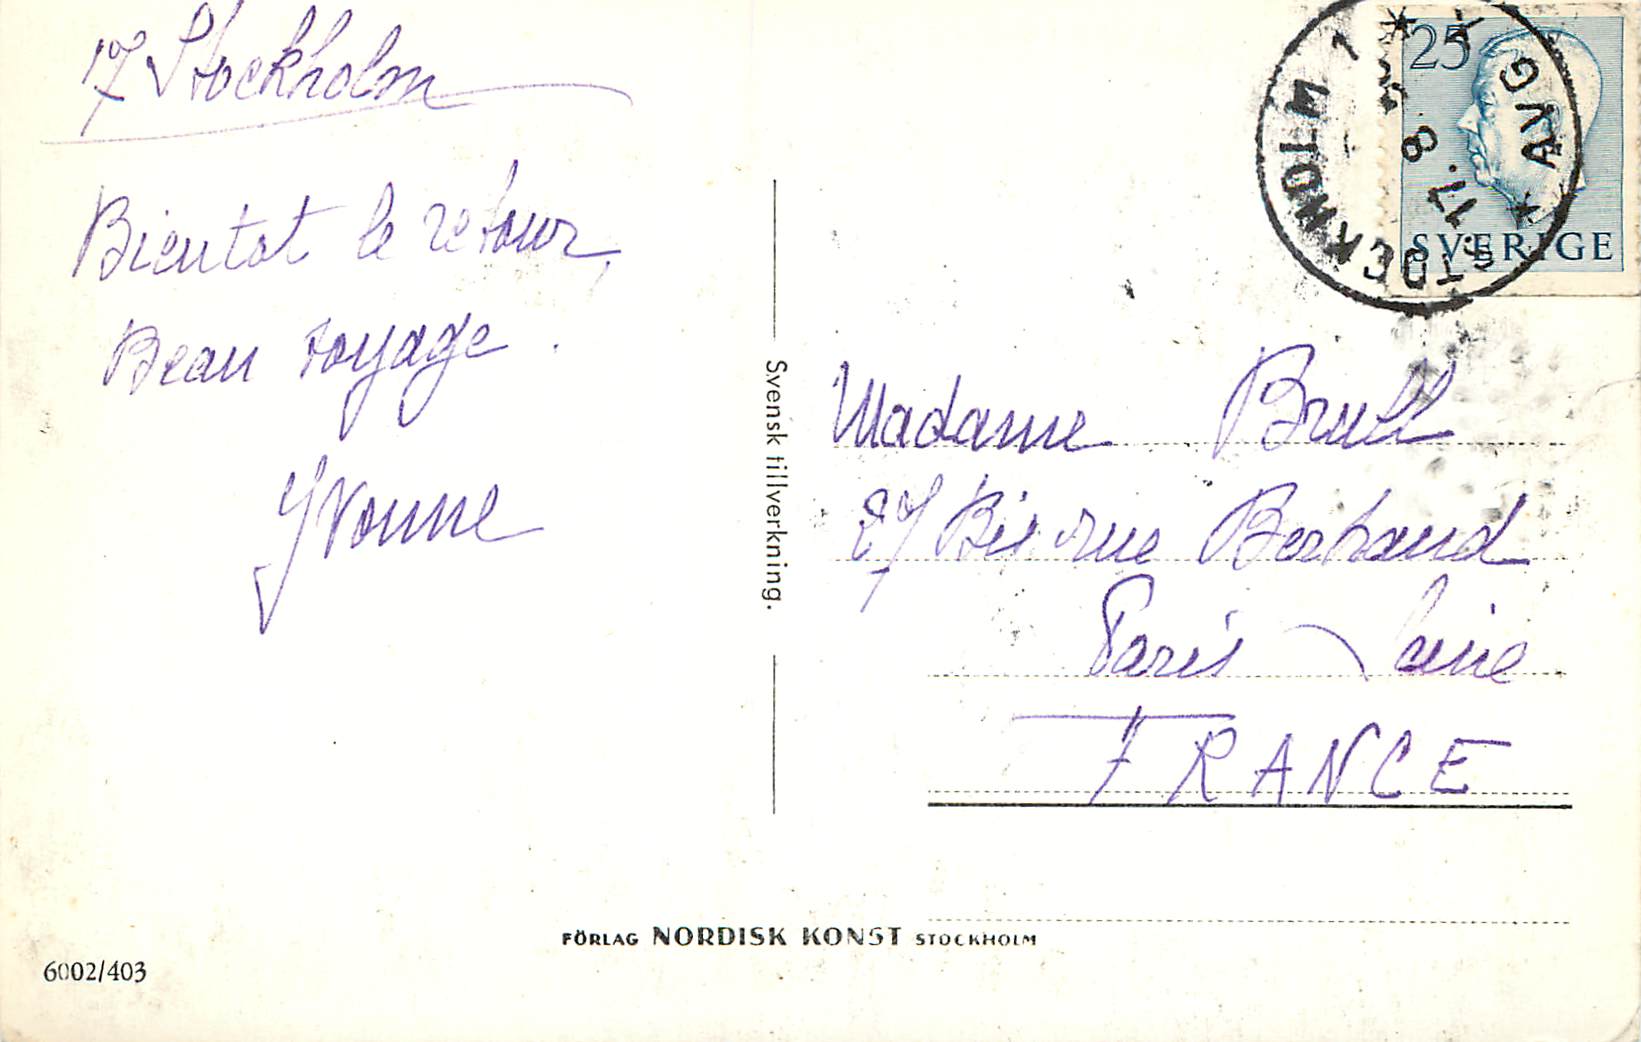 17 Stockholm
Bientot le retour,
Beau voyage.
Yvonne
Svensk tillverkning.
25
SVERIGE
STOCKHOLM 1
AVG
17. 8
Madame Brull
27 Bis rue Bertrand
Paris Seine
FRANCE
FÖRLAG NORDISK KONST STOCKHOLM
6002/403